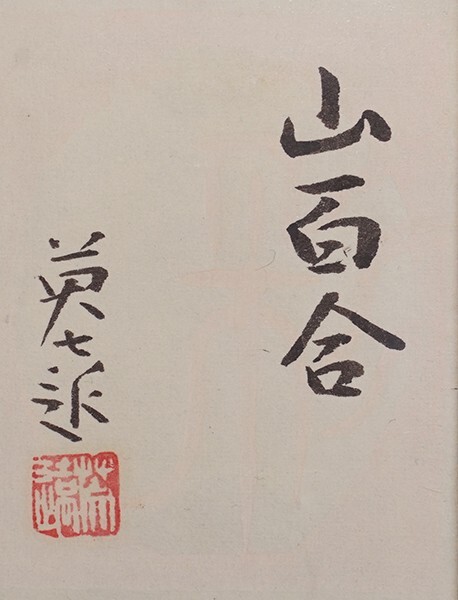 山百合
英七郎